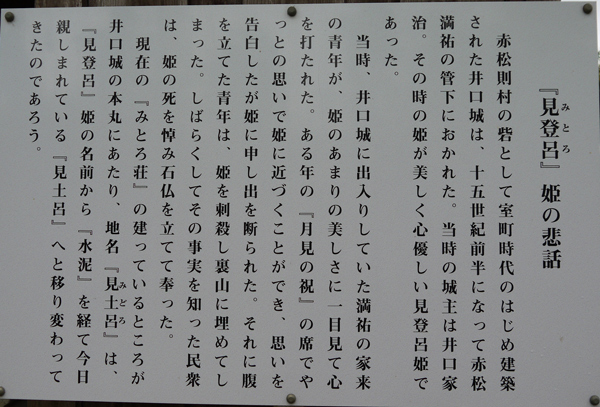 『見登呂』姫の悲話
みとろ
赤松則村の砦として室町時代のはじめ建築
された井口城は、十五世紀前半になって赤松
満祐の管下におかれた。当時の城主は井口家
治。その時の姫が美しく心優しい見登呂姫で
あった。
当時、井口城に出入りしていた満祐の家来
の青年が、姫のあまりの美しさに一目見て心
を打たれた。ある年の『月見の祝』の席でや
っとの思いで姫に近づくことができ、思いを
告白したが姫に申し出を断られた。それに腹
を立てた青年は、姫を刺殺し裏山に埋めてし
まった。しばらくしてその事実を知った民衆
は、姫の死を悼み石仏を立てて奉った。
現在の『みとろ荘』の建っているところが
井口城の本丸にあたり、地名『見土呂』は、
みどろ
『見登呂』姫の名前から『水泥』を経て今日
親しまれている『見土呂』へと移り変わって
きたのであろう。